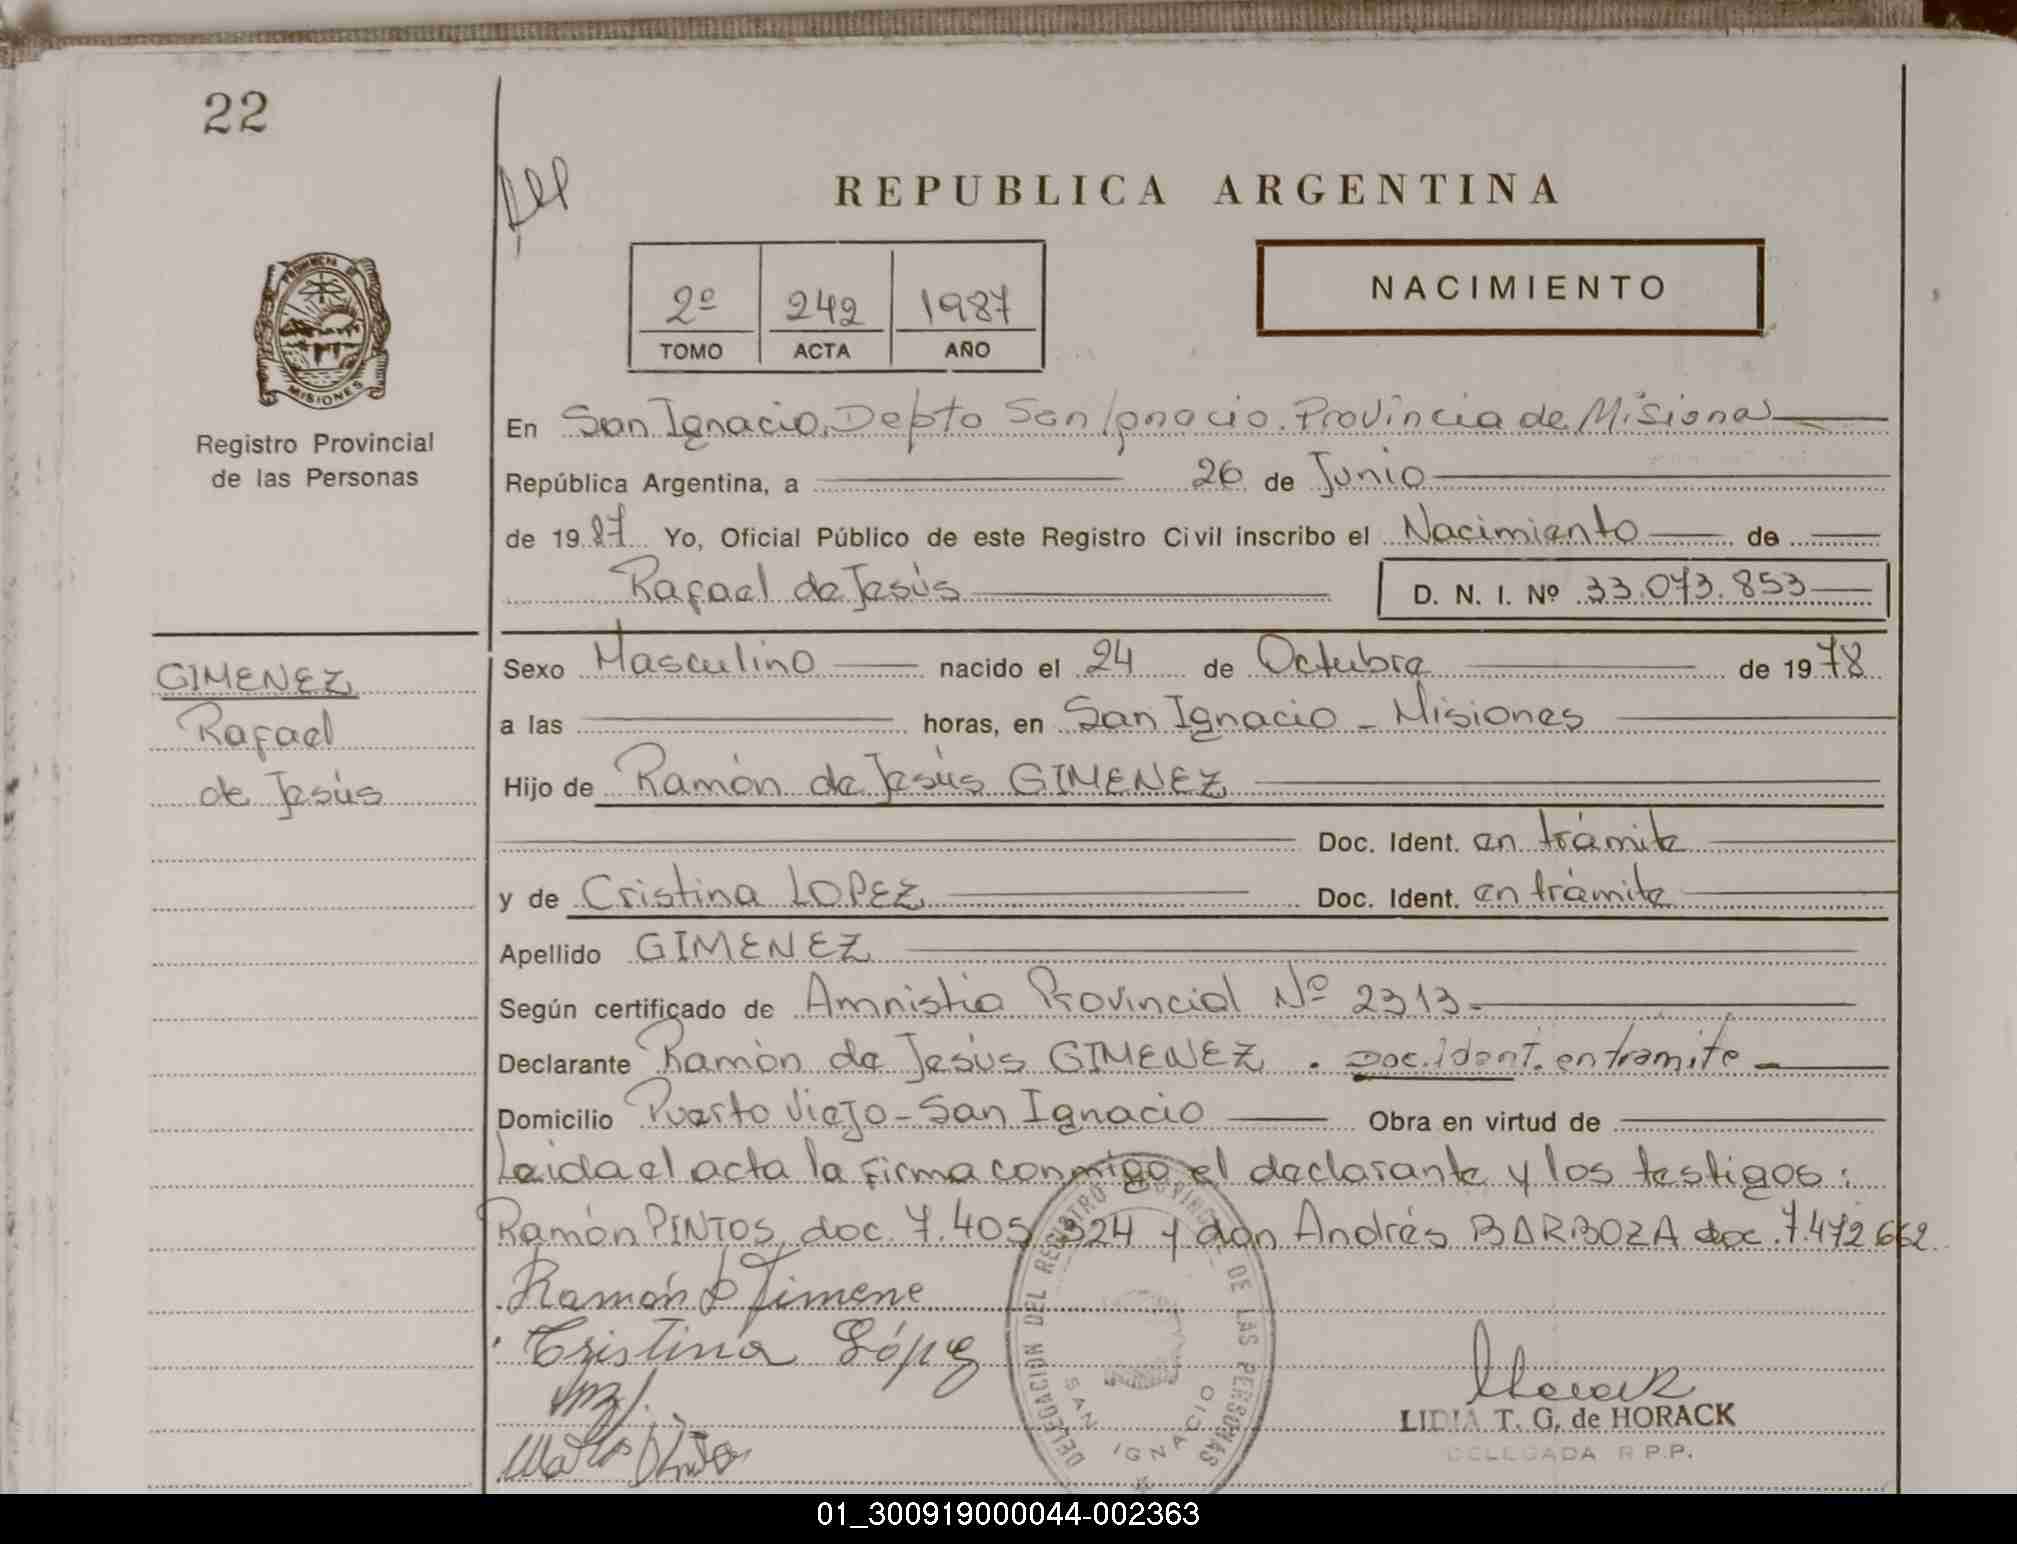 22
REPUBLICA ARGENTINA
PROVINCIA DE
MISIONES
Registro Provincial
de las Personas
2º 242 1987
TOMO ACTA AÑO
NACIMIENTO
En San Ignacio, Depto San Ignacio. Provincia de Misiones
República Argentina, a 26 de Junio
de 1987 Yo, Oficial Público de este Registro Civil inscribo el Nacimiento de
Rafael de Jesús D. N. I. Nº 33.073.853
GIMENEZ
Rafael
de Jesús
Sexo Masculino nacido el 24 de Octubre de 1978
a las horas, en San Ignacio - Misiones
Hijo de Ramón de Jesús GIMENEZ
Doc. Ident. en trámite
y de Cristina LOPEZ Doc. Ident. en trámite
Apellido GIMENEZ
Según certificado de Amnistia Provincial Nº 2313-
Declarante Ramón de Jesús GIMENEZ . Doc. ident. en tramite
Domicilio Puerto Viejo - San Ignacio Obra en virtud de
Leida el acta la firma conmigo el declarante y los testigos:
Ramón PINTOS, doc. 7.405.324 y don Andrés BARBOZA doc. 7.472.662.
Ramón D Jimene
Cristina López
DELEGACION DEL REGISTRO PROVINCIAL DE LAS PERSONAS
SAN IGNACIO
LIDIA T. G. de HORACK
DELEGADA R.P.P.
01_300919000044-002363